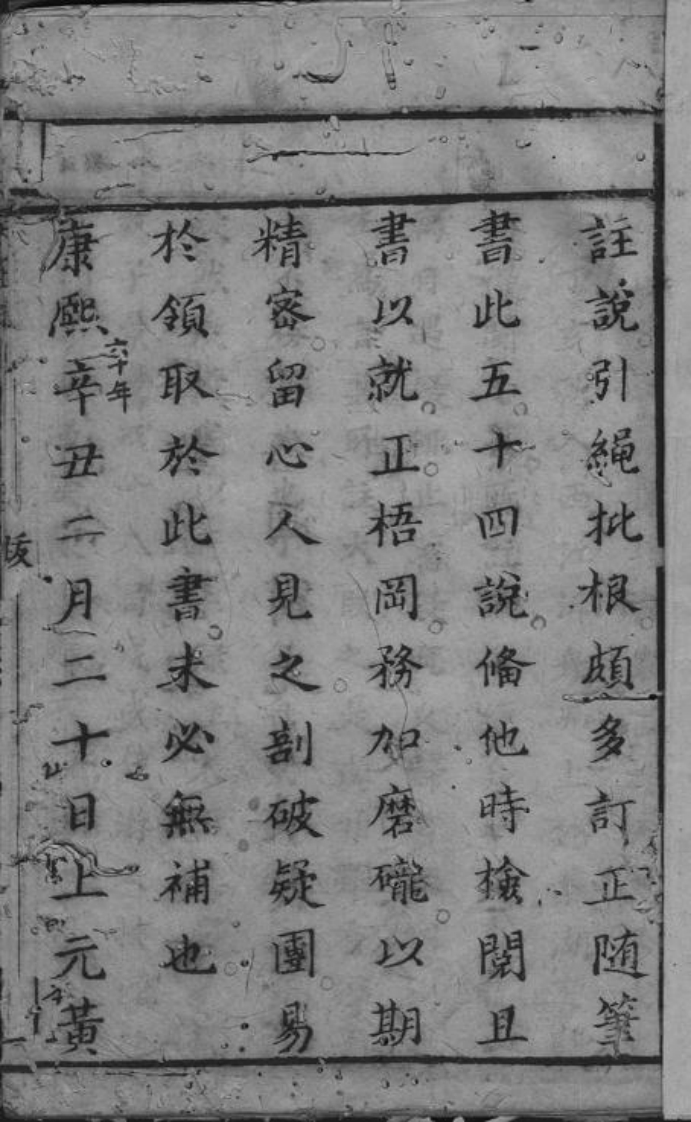 註說引繩批根頗多訂正随筆
書此五十四說俻他時檢閱且
書以就正梧岡務加磨礲以期
精宻留心人見之剖破疑團易
於領取於此書未必無補也
康熙辛丑二月二十日上元黃
六十年
䟦